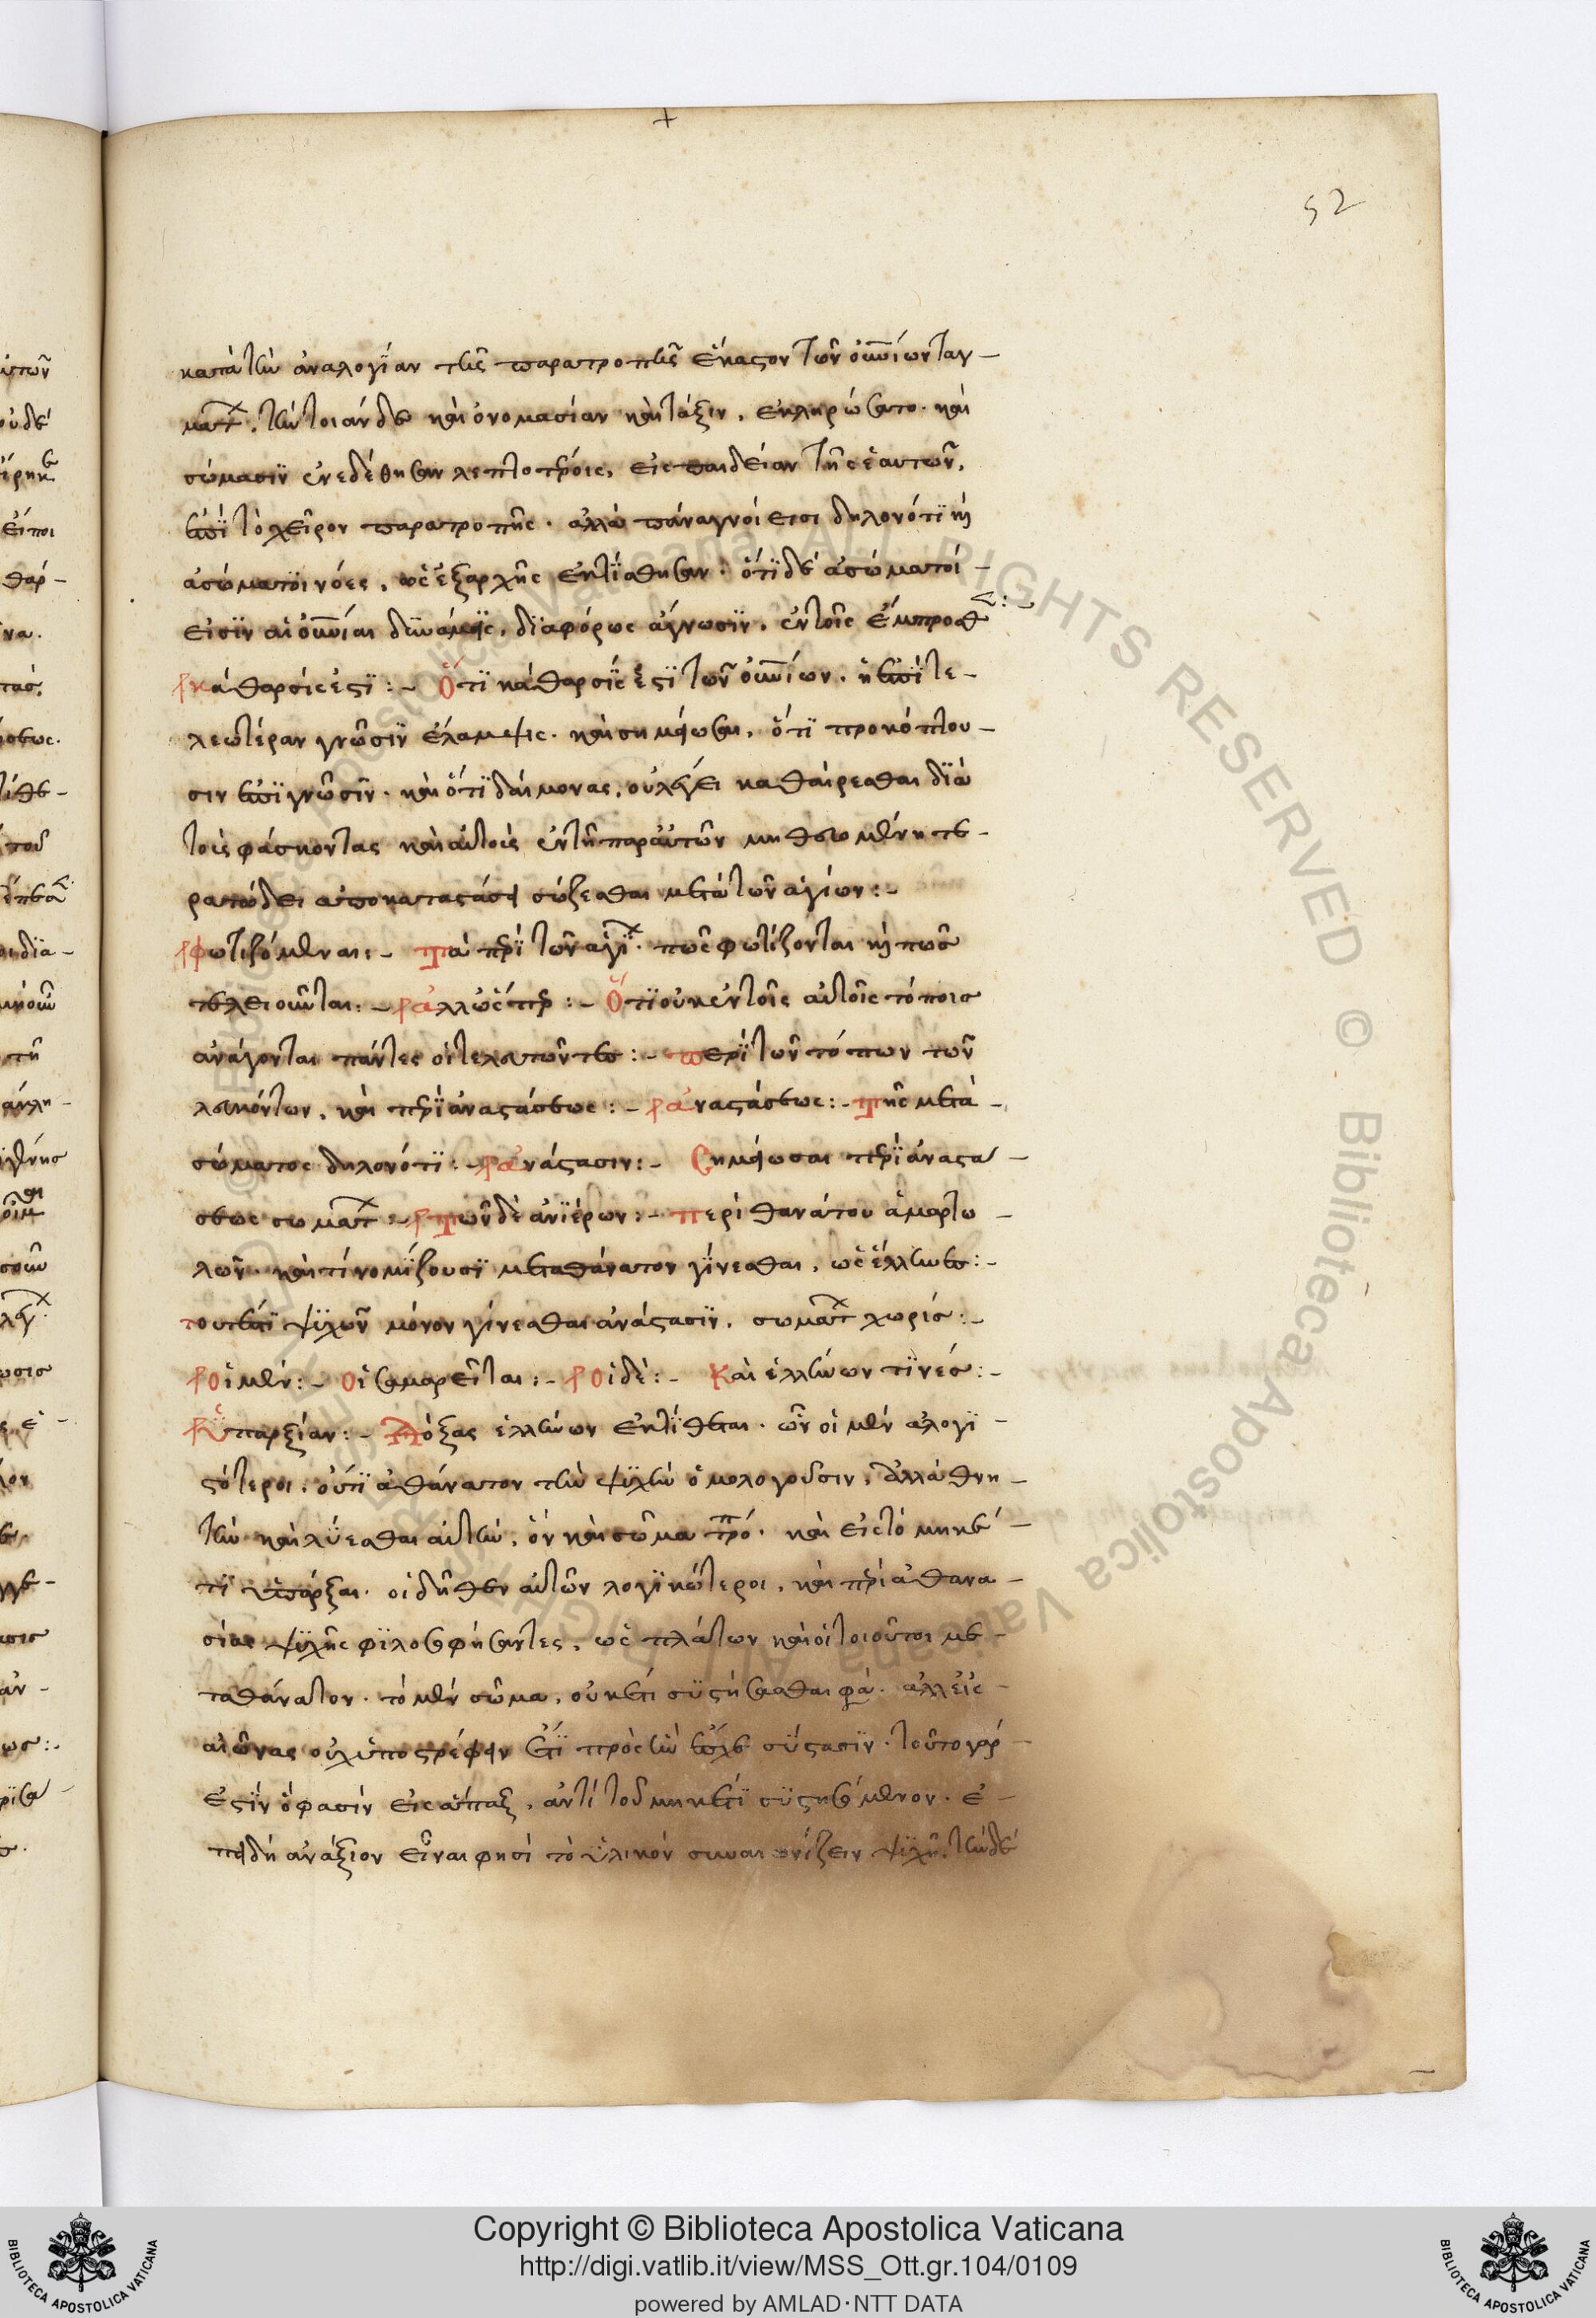 52
κατὰ τὴν ἀναλογίαν τῆς παρατροπῆς ἕκαστον τῶν οὐρανίων ταγ-
μάτ. τὴν τοιάνδε καὶ ὀνομασίαν καὶ τάξιν, ἐκληρώσατο. καὶ
σώμασϊν ἐνεδέθησαν λεπτοτέροις, εἰς παιδείαν τῆς ἑαυτῶν,
ἐπὶ τὸ χεῖρον παρατροπῆς. ἀλλὰ πάναγνοί εἰσι δηλονότϊ καὶ
ἀσώματοι νόες, ὡς ἐξαρχῆς ἐκτίσθησαν. ὅτϊ δὲ ἀσώματοί
εἰσϊν αἱ οὐράνιαι δυνάμεις, διαφόρως ἔγνωσϊν, ἐν τοῖς ἔμπροσθ :-
κάθαρσίς ἐστϊ :- Ὅτϊ κάθαρσίς ἐστϊ τῶν οὐρανίων, ἡ ἐπὶ τε-
λεωτέραν γνῶσϊν ἔλαμψις. καὶ σημείωσαι, ὅτϊ προκόπτου-
σιν ἐπὶ γνῶσϊν. καὶ ὅτϊ δαίμονας, οὐ λέγει καθαίρεσθαι διὰ
τοὺς φάσκοντας καὶ αὐτοὺς ἐν τῇ παρ' αὐτῶν μυθευομένη τε-
ρατώδει ἀποκαταστάσει σώζεσθαι μετὰ τῶν ἁγίων :-
φωτιζόμεναι :- Τὰ περὶ τῶν ἁγί. πῶς φωτίζονται καὶ πῶς
τελειοῦνται :- ἄλλως ἕτερ :- Ὅτϊ οὐκ ἐν τοῖς αὐτοῖς τόποις
ἀνάγονται πάντες οἱ τελευτῶντες :- περὶ τῶν τόπων τῶν
λευκόντων, καὶ περὶ ἀναστάσεως :- ἀναστάσεως :- Τῆς μετὰ
σώματος δηλονότϊ :- ἀνάστασιν :- Σημείωσαι περὶ ἀναστά-
σεως σωμάτ :- Τῶν δὲ ἀνϊέρων :- περὶ θανάτου ἁμαρτω-
λῶν. καὶ τί νομίζουσϊ μεταθάνατον γίνεσθαι, ὡς ἕλληνες :-
τουτέστϊ ψϋχῶν μόνον γίνεσθαι ἀνάστασϊν, σωμάτ χωρίς :-
Οἱ μέν :- Οἱ σαμαρεῖται :- Οἱ δὲ :- Καὶ ἑλλήνων τϊνές :-
ὕπαρξίαν :- Δόξας ἑλλήνων ἐκτίθεται. ὧν οἱ μὲν ἀλογϊ-
στότεροι, οὔτϊ ἀθάνατον τὴν ψϋχὴν ὁμολογοῦσιν, ἀλλὰ θνη-
τὴν καὶ λύεσθαι αὐτὴν, ὃν καὶ σῶμα τρό. καὶ εἰς τὸ μηκέ-
τϊ ὑπάρξαι. οἱ δῆθεν αὐτῶν λογϊκώτεροι, καὶ περὶ ἀθανα-
σίας ψϋχῆς φϊλοσοφήσαντες, ὡς πλάτων καὶ οἱ τοιοῦτοι με-
ταθάνατον. τὸ μὲν σῶμα, οὐκέτι συστήσασθαι φα. ἀλλ' εἰς
αἰῶνας οὐχ ὑποστρέφειν ἔτϊ πρὸς ἣν εἶχε σύστασϊν. τοῦτο γάρ
ἐστϊν ὅ φασίν εἰς ἅπαξ, ἀντὶ τοῦ μηκέτϊ συστησόμενον. ἐ-
πειδὴ ἀνάξιον εἶναι φησὶ τὸ ὑλικὸν συναιωνίζειν ψϋχῇ. τὴν δὲ
Copyright © Biblioteca Apostolica Vaticana
http://digi.vatlib.it/view/MSS_Ott.gr.104/0109
powered by AMLAD·NTT DATA